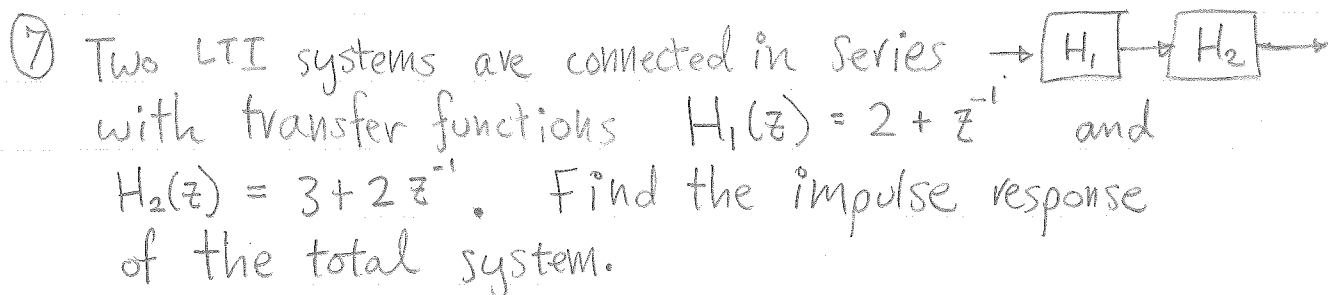 ⑦ Two LTI systems are connected in Series → H₁ → H₂ →
with transfer functions H₁(z) = 2 + z⁻¹ and
H₂(z) = 3 + 2z⁻¹. Find the impulse response
of the total system.